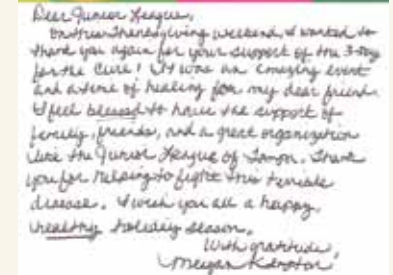 Dear Junior League,
On this Thanksgiving weekend, I wanted to
thank you again for your support of the 3-Day
for the Cure! It was an amazing event
and a time of healing for my dear friend.
I feel blessed to have the support of
family, friends, and a great organization
like the Junior League of Tampa. Thank
you for helping to fight this terrible
disease. I wish you all a happy,
healthy holiday season.
With gratitude,
Megan